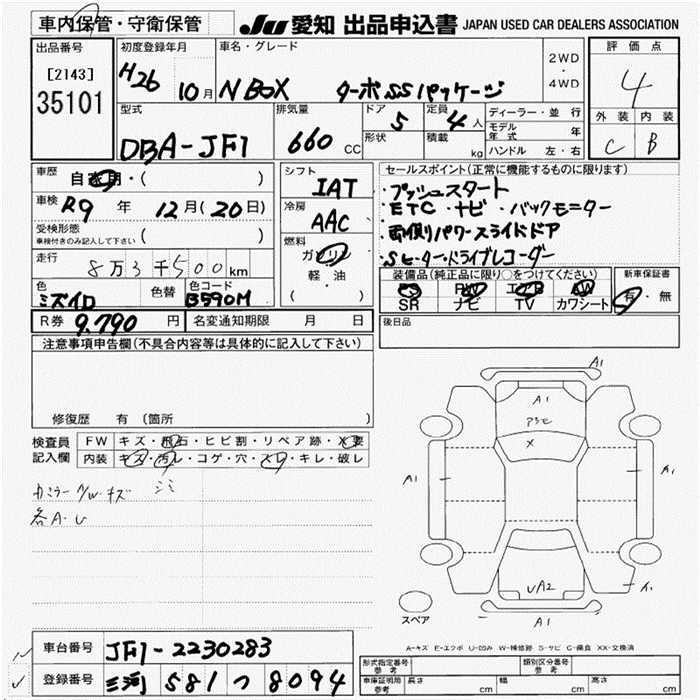 車内保管・守衛保管
JU 愛知 出品申込書 JAPAN USED CAR DEALERS ASSOCIATION
出品番号 初度登録年月 車名・グレード 2WD ・ 4WD 評価点
[2143] H26 10月 N BOX ターボSSパッケージ 4
35101
型式 排気量 ドア 定員 ディーラー・並行 外装 内装
DBA-JF1 660 CC 5 4人 モデル年 年 C B
形状 積載 kg ハンドル 左・右
車歴 自家用・( ) シフト セールスポイント(正常に機能するものに限ります)
IAT ・プッシュスタート
車検 R9年 12月(20日) 冷房 ・ETC・ナビ・バックモニター
AAC ・両側パワースライドドア
受検形態 車検付きのみ記入して下さい ( ) 燃料 ・Sヒーター・ドライブレコーダー
走行 8万3千500km ガソリン 装備品(純正品に限り○をつけてください) 新車保証書
軽・油 PS PW エアB AW 有・無
色 色替 色コード ( ) SR ナビ TV カワシート
ミズイロ B590M
R券 9,790円 名変通知期限 月 日 後日品
注意事項申告欄(不具合内容等は具体的に記入して下さい)
修復歴 有 (箇所 )
検査員 FW キズ・飛石・ヒビ割・リペア跡・X要
記入欄 内装 キズ・汚レ・コゲ・穴・スレ・キレ・破レ
カミラー A/W キズ
各A・U
A1
A1
アラモ
X
A1 A1
UA2
A1
スペア
A-キズ E-エクボ U-凹み W-補修跡 S-サビ C-腐食 XX-交換済
車台番号 JF1-2230283
登録番号 三河 581 つ 8094
形式指定番号 参考 類別区分番号 参考
車庫証明用 参考 長さ cm 幅 cm 高さ cm